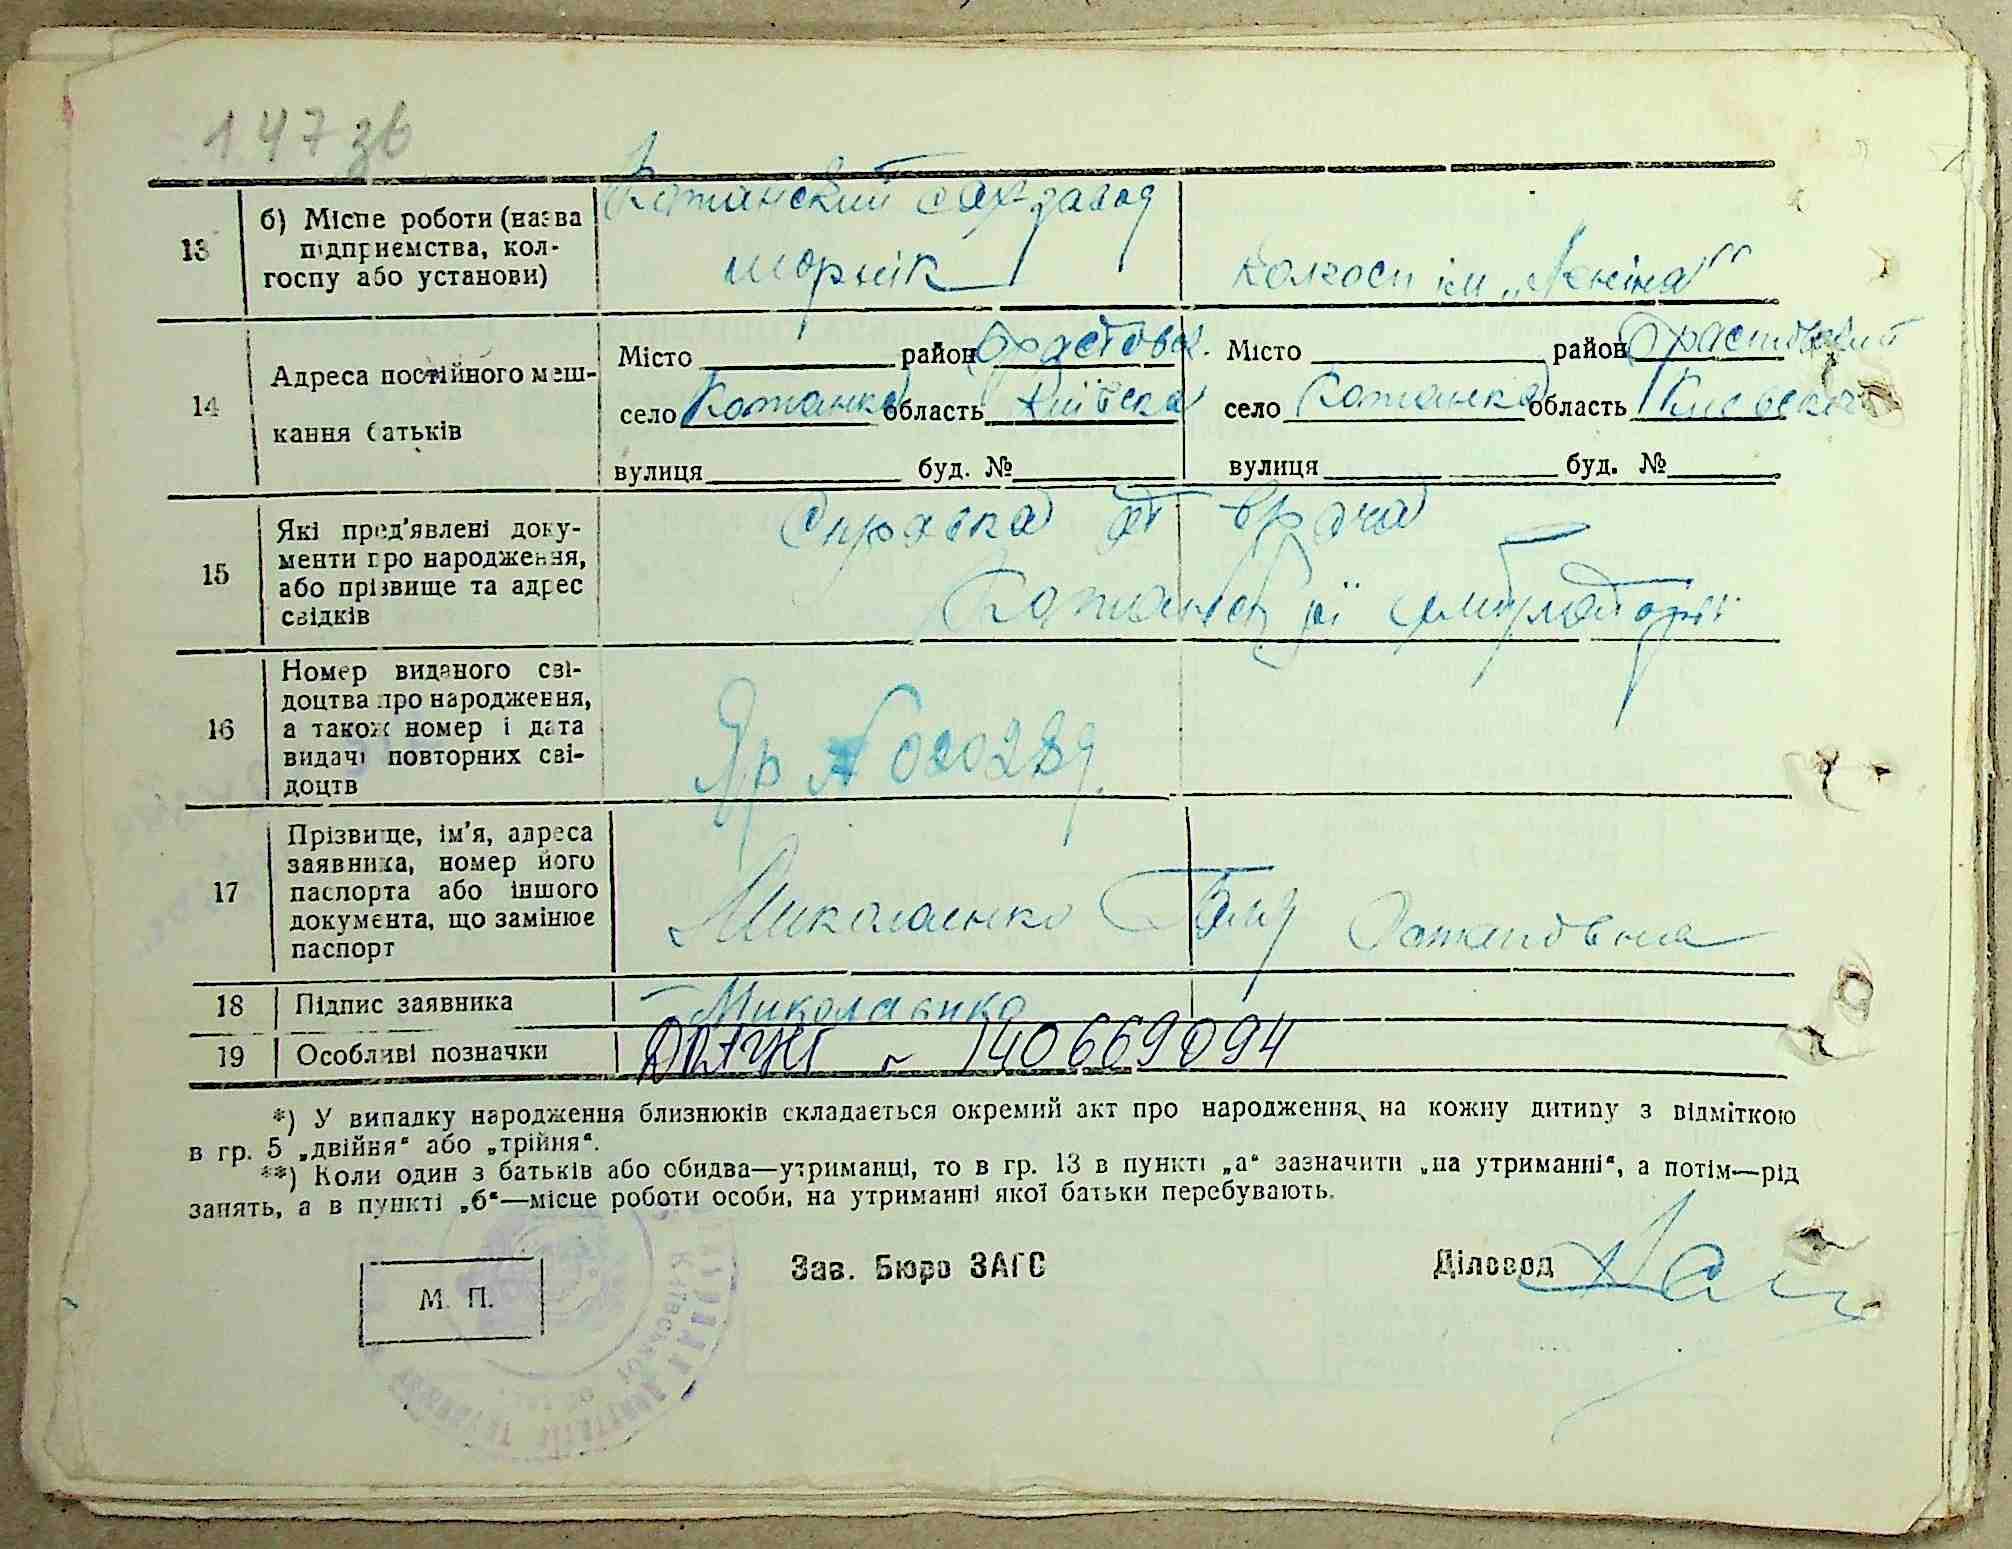 147 зв
13
б) Місце роботи (назва
підприємства, кол-
госпу або установи)
Кожанский сахзавод
шорнік
колгосп ім „Леніна"
14
Адреса постійного меш-
кання батьків
Місто район Фастовск.
село Кожанка область Київска
вулиця буд. №
Місто район Фрастовский
село Кожанка область Киевская
вулиця буд. №
15
Які пред'явлені доку-
менти про народження,
або прізвище та адрес
свідків
Справка от врача
Кожанськї амбулаторії
16
Номер виданого сві-
доцтва про народження,
а також номер і дата
видачі повторних сві-
доцтв
№ 020289.
17
Прізвище, ім'я, адреса
заявника, номер його
паспорта або іншого
документа, що замінює
паспорт
Миколаенко Остаповна
18
Підпис заявника
Миколаенко
19
Особливі позначки
ДРАЦСГ - 140669094
*) У випадку народження близнюків складається окремий акт про народження, на кожну дитину з відміткою
в гр. 5 „двійня" або „трійня".
**) Коли один з батьків або обидва—утриманці, то в гр. 13 в пункті „а" зазначити „на утриманні", а потім—рід
занять, а в пункті „б"—місце роботи особи, на утриманні якої батьки перебувають.
М. П.
Зав. Бюро ЗАГС
Діловод